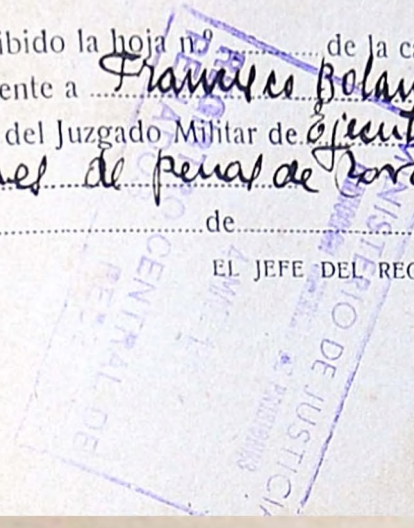 ibido la hoja n.º ............ de la ca
ente a Francisco Bolan
del Juzgado Militar de Ejecut
nes de penas de Zara
de
EL JEFE DEL REG
MINISTERIO DE JUSTICIA
REGISTRO CENTRAL DE
PENADOS